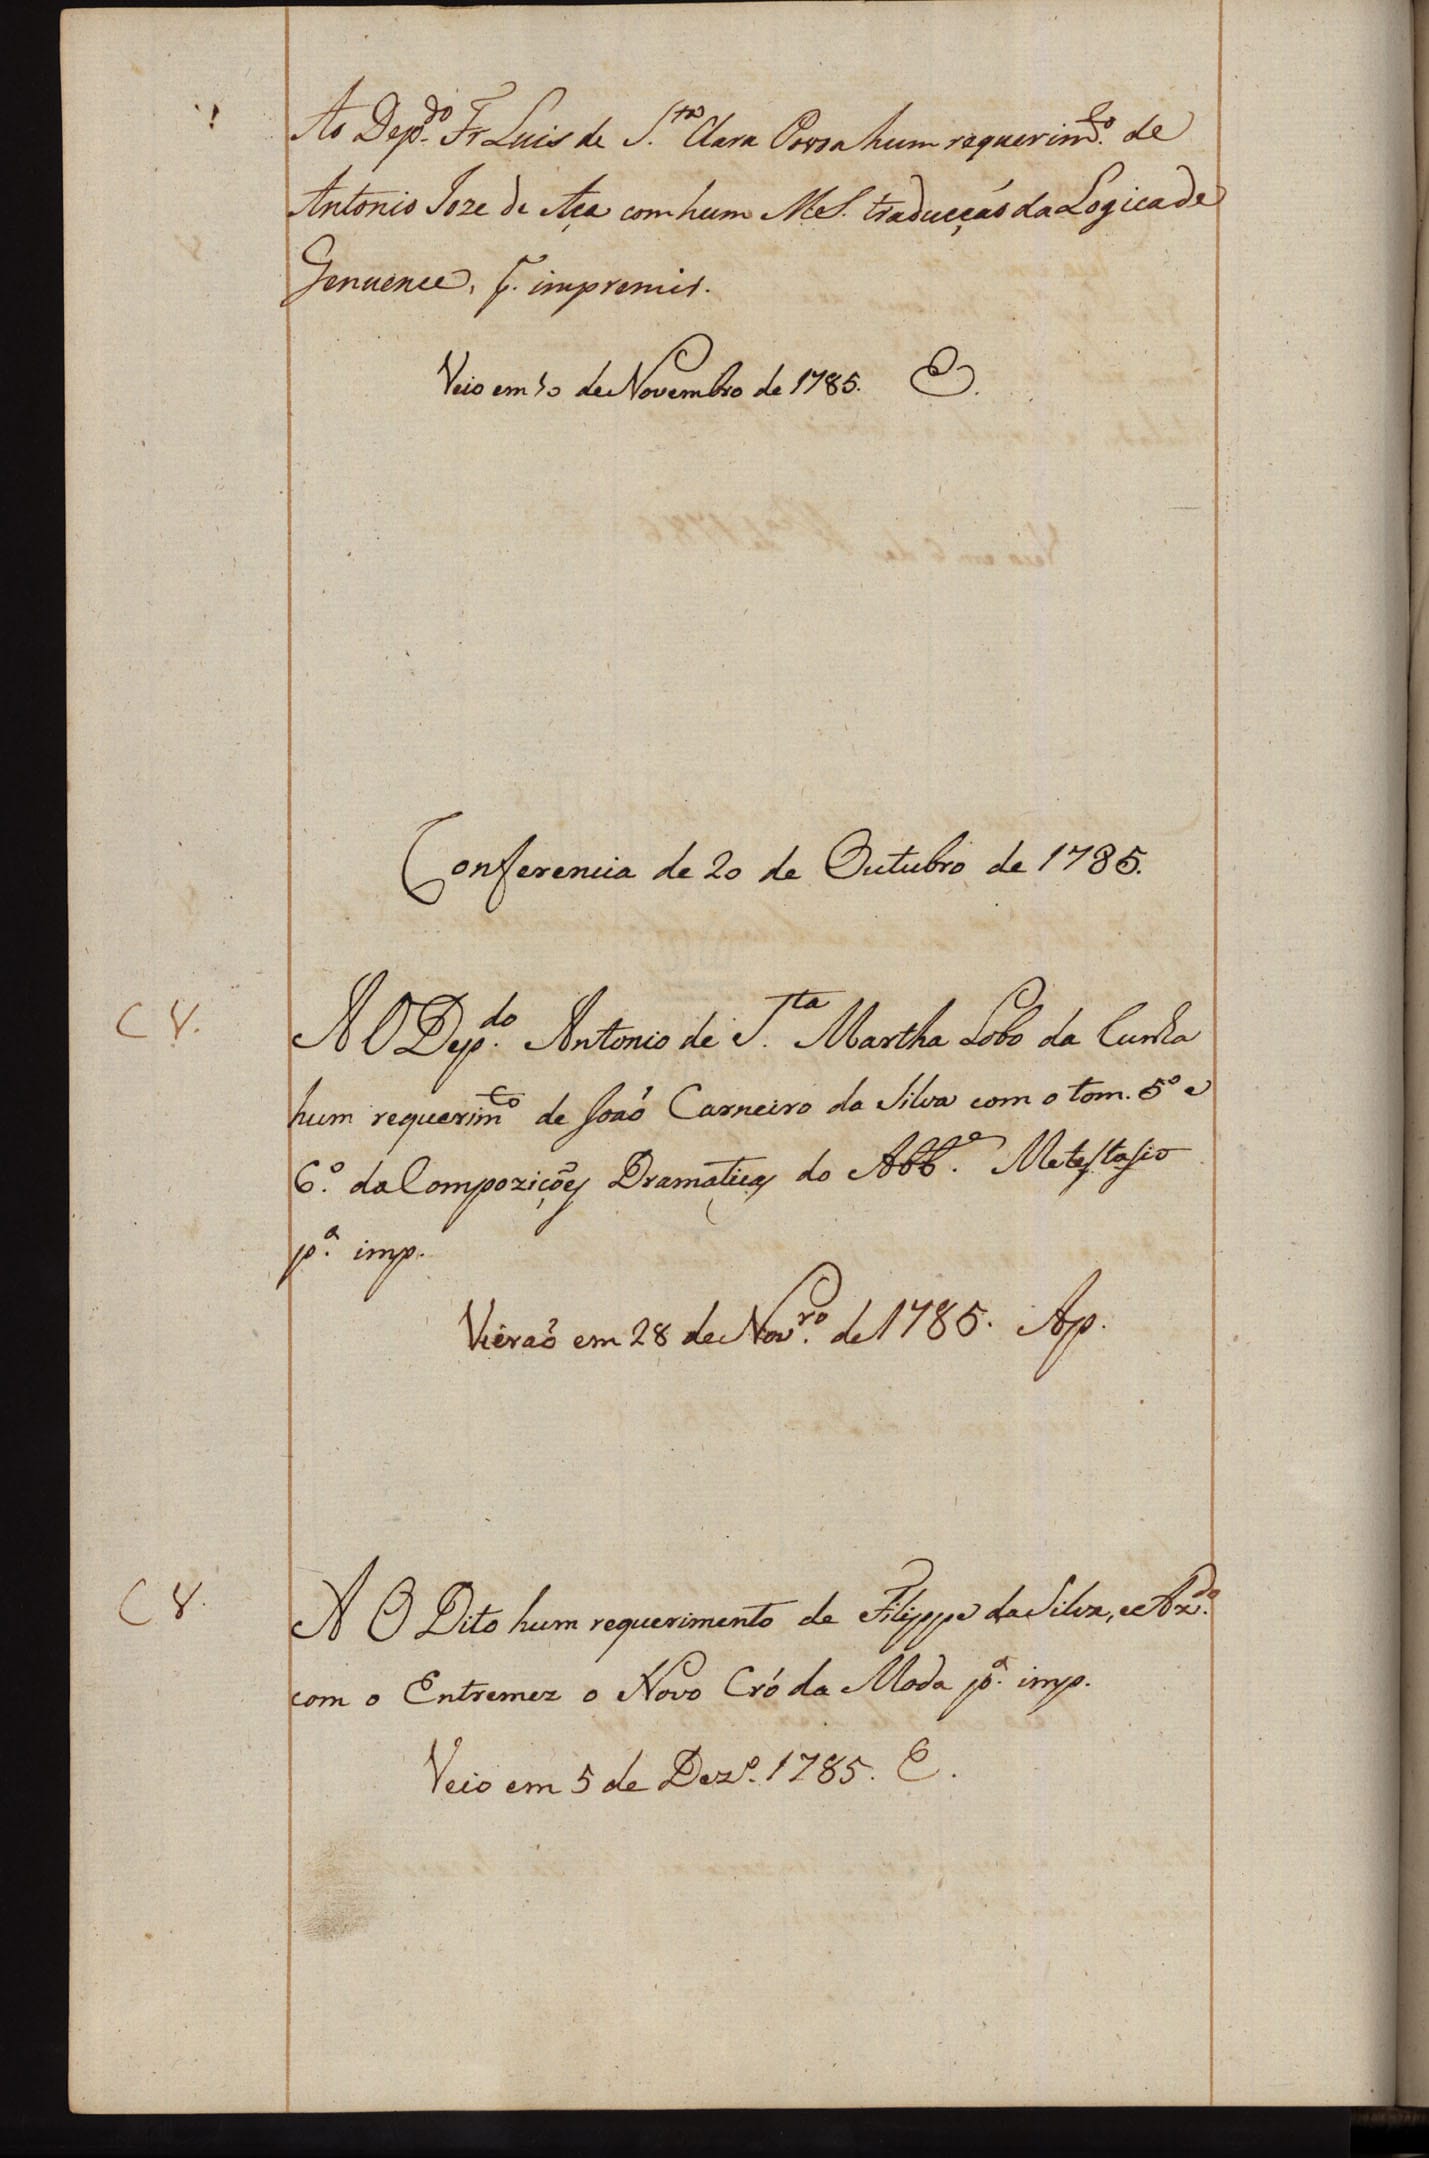 Ao Dep.do Fr Luis de S.ta Clara Povoa hum requerim.to de
Antonio Joze de Aça com hum M.S. traducçaó da Logica de
Genuence, p. impremir.
Veio em 10 de Novembro de 1785. E.
Conferencia de 20 de Outubro de 1785.
C 8.
AO Dep.do Antonio de S.ta Martha Lobo da Cunha
hum requerim.to de Joaó Carneiro da Silva com o tom. 5º e
6.º da Compoziçoẽs Dramaticas do Abb.e Metestasio
p.a imp.
Vieraõ em 28 de Nov.ro de 1785. Ap.
C 8.
AO Dito hum requerimento de Filippe da Silva, e Az.do
com o Entremez o Novo Cró da Moda p.a imp.
Veio em 5 de Dez.o 1785. E.